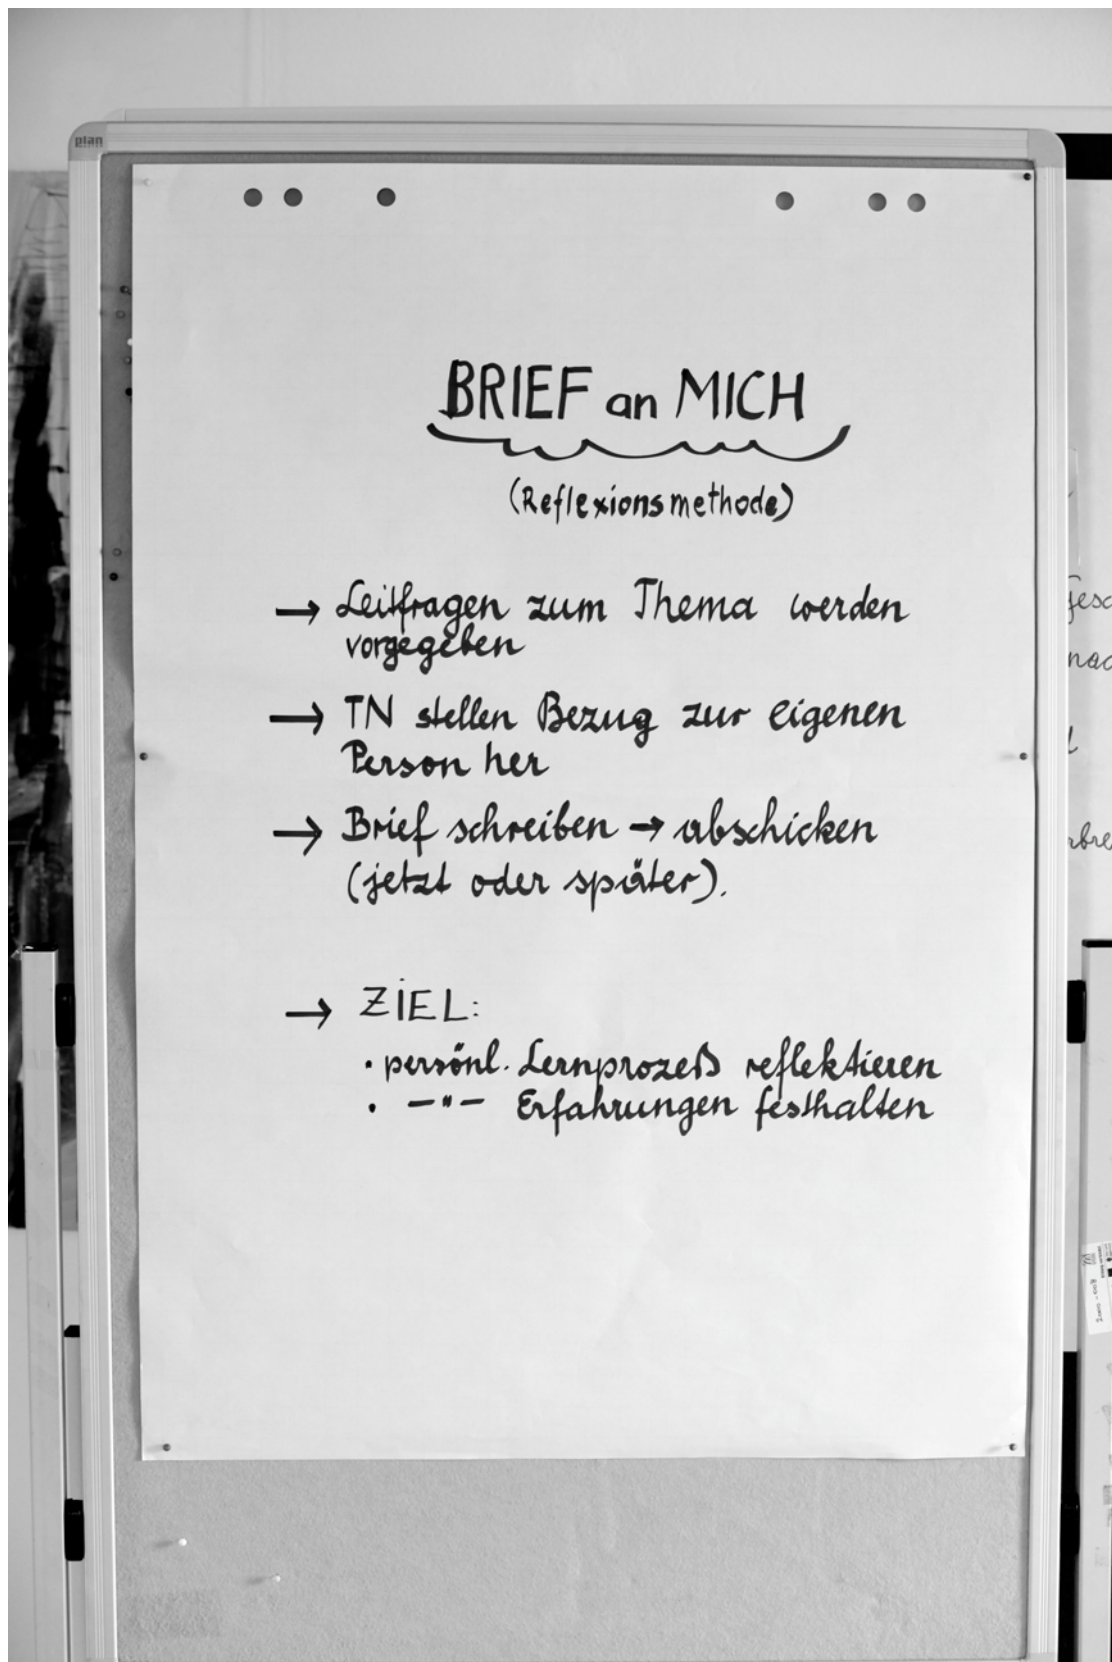 plan
BRIEF an MICH
(Reflexionsmethode)
→ Leitfragen zum Thema werden
vorgegeben
→ TN stellen Bezug zur eigenen
Person her
→ Brief schreiben → abschicken
(jetzt oder später).
→ ZIEL:
• persönl. Lernprozeß reflektieren
• —"— Erfahrungen festhalten